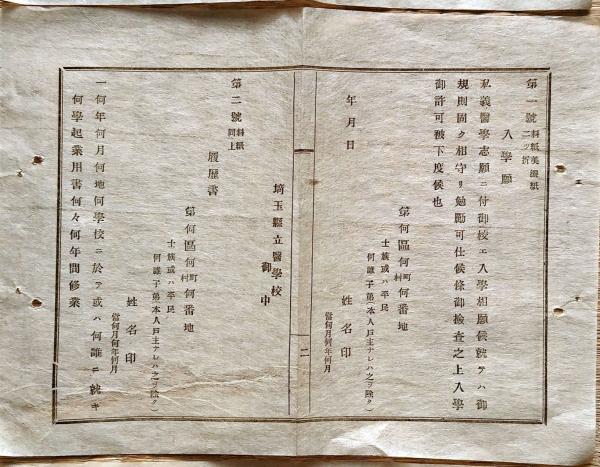 第一號 料紙美濃紙二ッ折
入學願
私義醫學志願ニ付御校エ入學相願候就テハ御
規則固ク相守リ勉勵可仕候條御撿査之上入學
御許可被下度候也
年月日
第何區何町村何番地
士族或ハ平民
何誰子弟(本人戸主ナレハ之ヲ除ク)
姓名印
當何月何年何月
二
埼玉縣立醫學校
御中
第二號 料紙同上
履歷書
第何區何町村何番地
士族或ハ平民
何誰子弟(本人戸主ナレハ之ヲ除ク)
姓名印
當何月何年何月
一何年何月何地何學校ニ於テ或ハ何誰ニ就キ
何學起業用書何々何年間修業